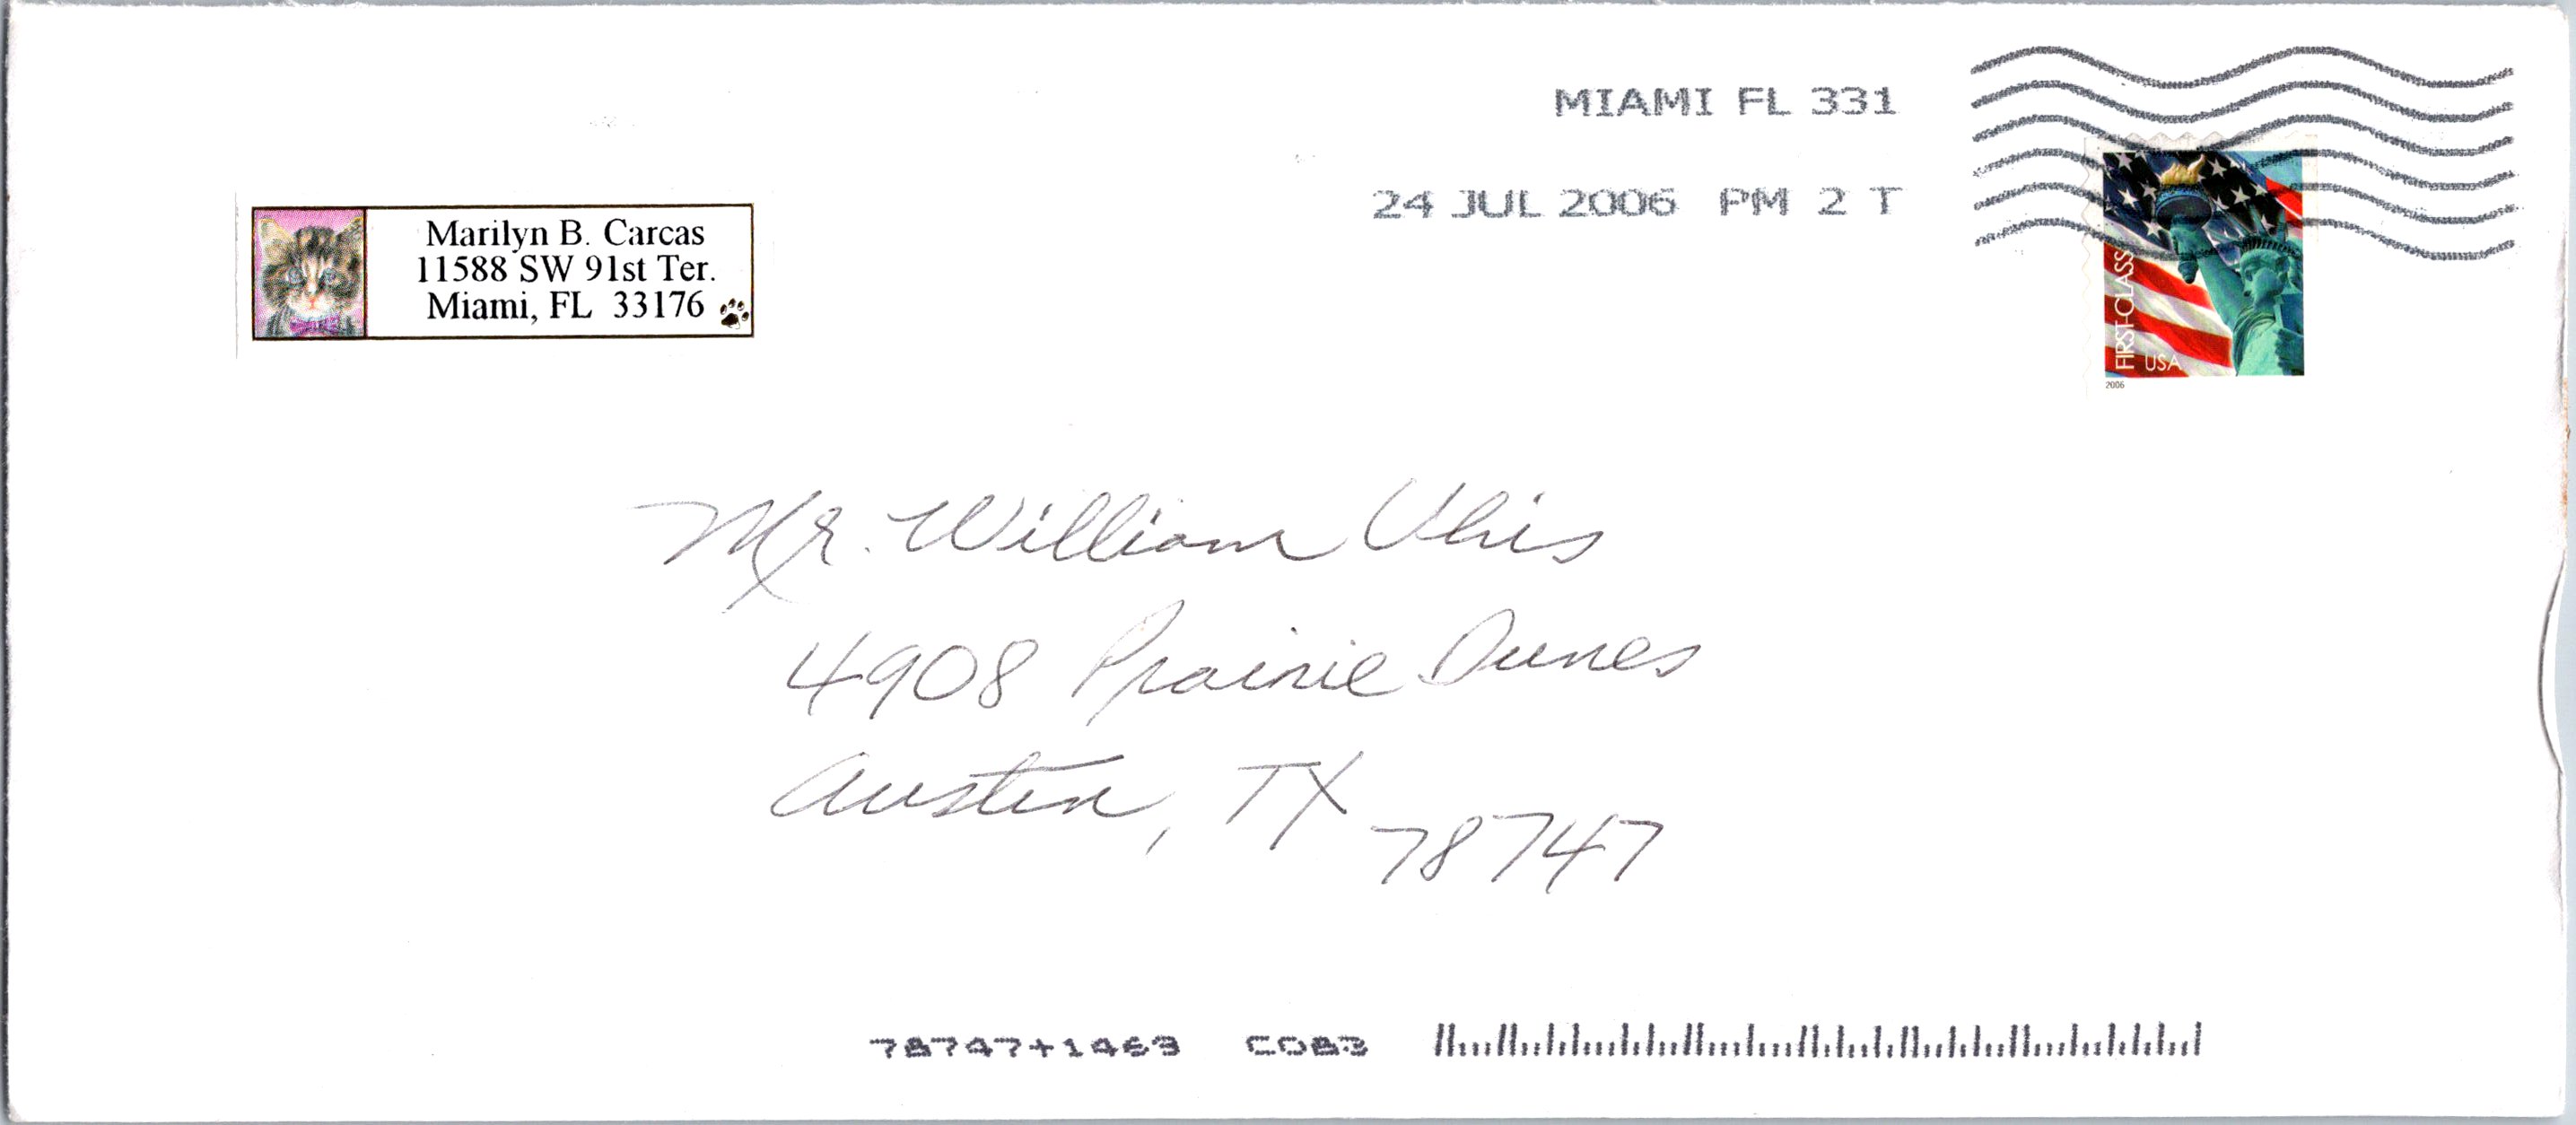 MIAMI FL 331
24 JUL 2006 PM 2 T
Marilyn B. Carcas
11588 SW 91st Ter.
Miami, FL 33176
FIRST-CLASS
USA
2006
Mr. William Uhis
4908 Prairie Dunes
Austin, TX
78747
78747+1469 C083